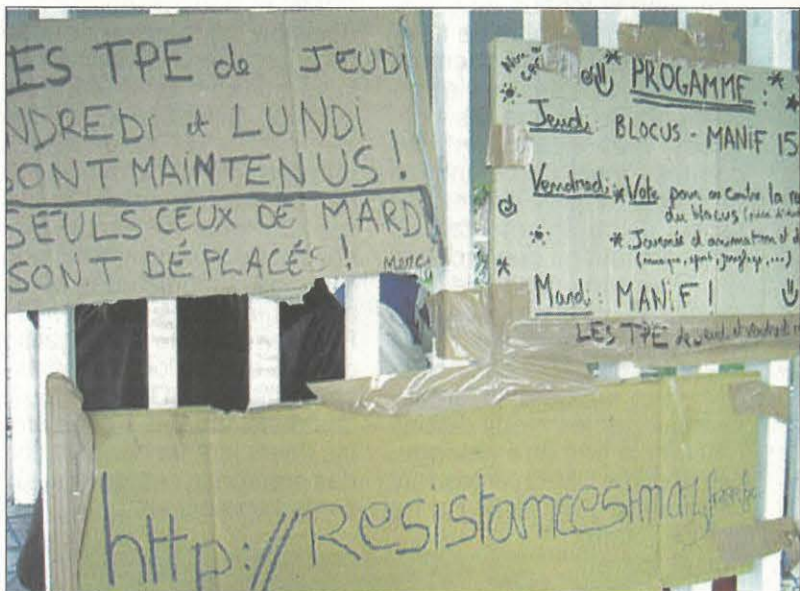 ES TPE de JEUDI
NDREDI et LUNDI
SONT MAINTENUS !
SEULS CEUX DE MARDI
SONT DÉPLACÉS ! Merci
PROGAMME :
Jeudi : BLOCUS - MANIF 15
Vendredi : * Vote pour ou contre la
du blocus
* Journée d'animation et d
(musique, sport, jonglage, ...)
Mardi : MANIF !
LES TPE de jeudi et vendredi
http://Resistances